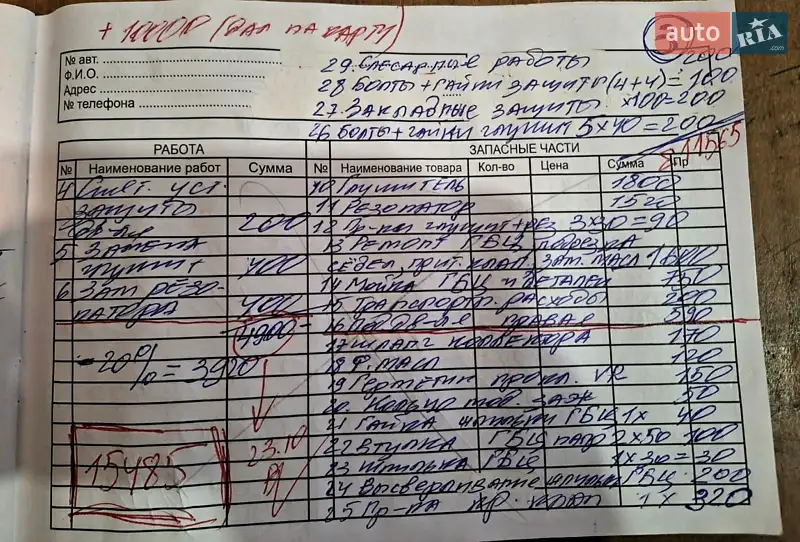 + 1000 (на карту)
auto RIA .com
№ авт.
Ф.И.О.
Адрес
№ телефона
29. Слесарные работы
28 Болты + гайки защиты (4+4) = 100
27. Закладные защиты х100 = 200
26 Болты + гайки глушит 5 х 40 = 200
Σ 11565
РАБОТА ЗАПАСНЫЕ ЧАСТИ
№ Наименование работ Сумма № Наименование товара Кол-во Цена Сумма Пр
4 Снят. уст. защиты дв-ля 200
5 Замена глушит 400
6 Зам. резонатора 400
4900
-20% = 3920
15485
23.10
10 Глушитель 1800
11 Резонатор 1520
12 Пр-ки глушит + рез 3х30 = 90
13 Ремонт ГБЦ подрезка
седел, прит. клап. зам. масл 1600
14 Мойка ГБЦ и деталей 750
15 Транспортн. расходы 200
16 правая 590
17 Шланг коллектора 170
18 Ф. масл 120
19 Герметик прокл. VR 150
20. Кольцо 50
21 Гайка шпильки ГБЦ 1х 40
22 Втулка ГБЦ 2х50 100
23 Шпилька ГБЦ 1х30 = 30
24 Высверливание шпильки ГБЦ. 200
25 Пр-ка кр. клап 1х 320